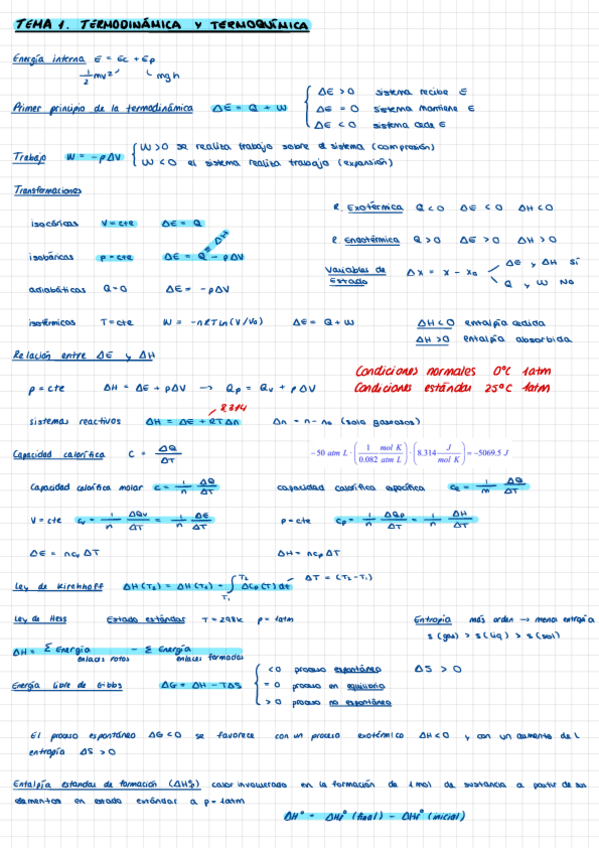 TEMA 1. TERMODINÁMICA Y TERMOQUÍMICA
Energía interna E = Ec + Ep
1/2 mv² mgh
Primer principio de la termodinámica ΔE = Q + W
ΔE > 0 sistema recibe E
ΔE = 0 sistema mantiene E
ΔE < 0 sistema cede E
Trabajo W = -pΔV
W > 0 se realiza trabajo sobre el sistema (compresión)
W < 0 el sistema realiza trabajo (expansión)
Transformaciones
R. Exotérmica Q < 0 ΔE < 0 ΔH < 0
isocóricas V = cte ΔE = Q
R. Endotérmica Q > 0 ΔE > 0 ΔH > 0
isobáricas p = cte ΔE = Q - pΔV
= ΔH
Variables de Estado Δx = x - x₀
ΔE y ΔH Sí
Q y W No
adiabáticas Q = 0 ΔE = -pΔV
isotérmicas T = cte W = -nRTLn(V/V₀) ΔE = Q + W
ΔH < 0 entalpía cedida
ΔH > 0 entalpía absorbida
Relación entre ΔE y ΔH
Condiciones normales 0°C 1atm
Condiciones estándar 25°C 1atm
p = cte ΔH = ΔE + pΔV → Qp = Qv + pΔV
8'314
sistemas reactivos ΔH = ΔE + RTΔn Δn = n - n₀ (solo gaseosos)
Capacidad calorífica C = ΔQ/ΔT
-50 atm L · (1 mol K / 0.082 atm L) · (8.314 J / mol K) = -5069.5 J
Capacidad calorífica molar c = 1/n ΔQ/ΔT capacidad calorífica específica ce = 1/m ΔQ/ΔT
V = cte cv = 1/n ΔQv/ΔT = 1/n ΔE/ΔT p = cte cp = 1/n ΔQp/ΔT = 1/n ΔH/ΔT
ΔE = ncvΔT ΔH = ncpΔT
Ley de Kirchhoff ΔT = (T₂ - T₁)
Ley de Hess Estado estándar T = 298K p = 1atm
Entropía más orden → menos entropía
s (gas) > s (líq) > s (sol)
ΔH = Σ Energía enlaces rotos - Σ Energía enlaces formados
Energía libre de Gibbs ΔG = ΔH - TΔS
< 0 proceso espontáneo ΔS > 0
= 0 proceso en equilibrio
> 0 proceso no espontáneo
El proceso espontáneo ΔG < 0 se favorece con un proceso exotérmico ΔH < 0 y con un aumento de l
entropía ΔS > 0
Entalpía estándar de formación (ΔHf°) calor involucrado en la formación de 1mol de sustancia a partir de sus
elementos en estado estándar a p = 1atm
ΔH° = ΔHf° (final) - ΔHf° (inicial)